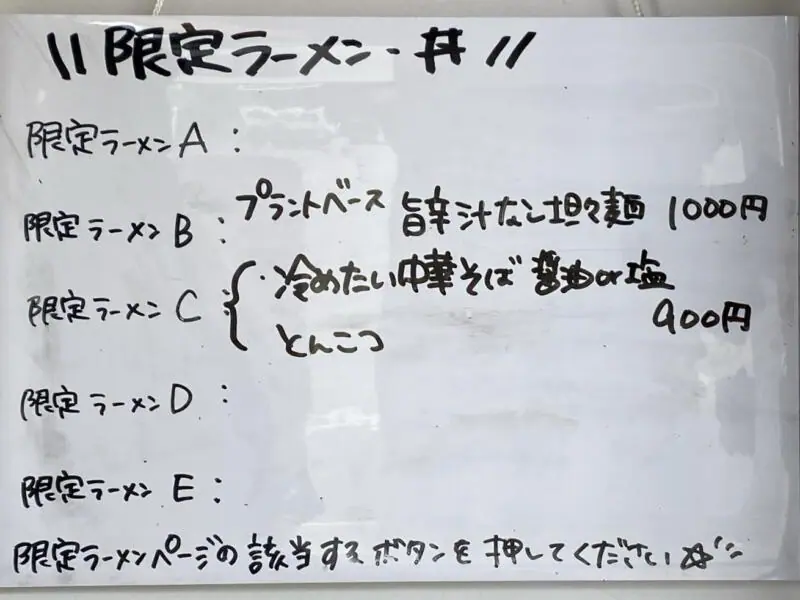 \\ 限定ラーメン・丼 //
限定ラーメン A :
限定ラーメン B : プラントベース 旨辛汁なし坦々麺 1000円
限定ラーメン C : { ・冷めたい中華そば 醤油or塩
900円
とんこつ
限定ラーメン D :
限定ラーメン E :
限定ラーメンページの該当するボタンを押してください☆